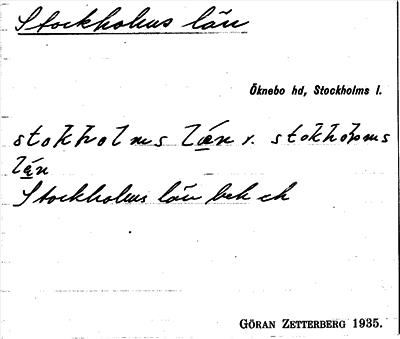 Stockholms län
Öknebo hd, Stockholms l.
stokholms län v. stokhoms
län
Stockholms län bek ek
GÖRAN ZETTERBERG 1935.